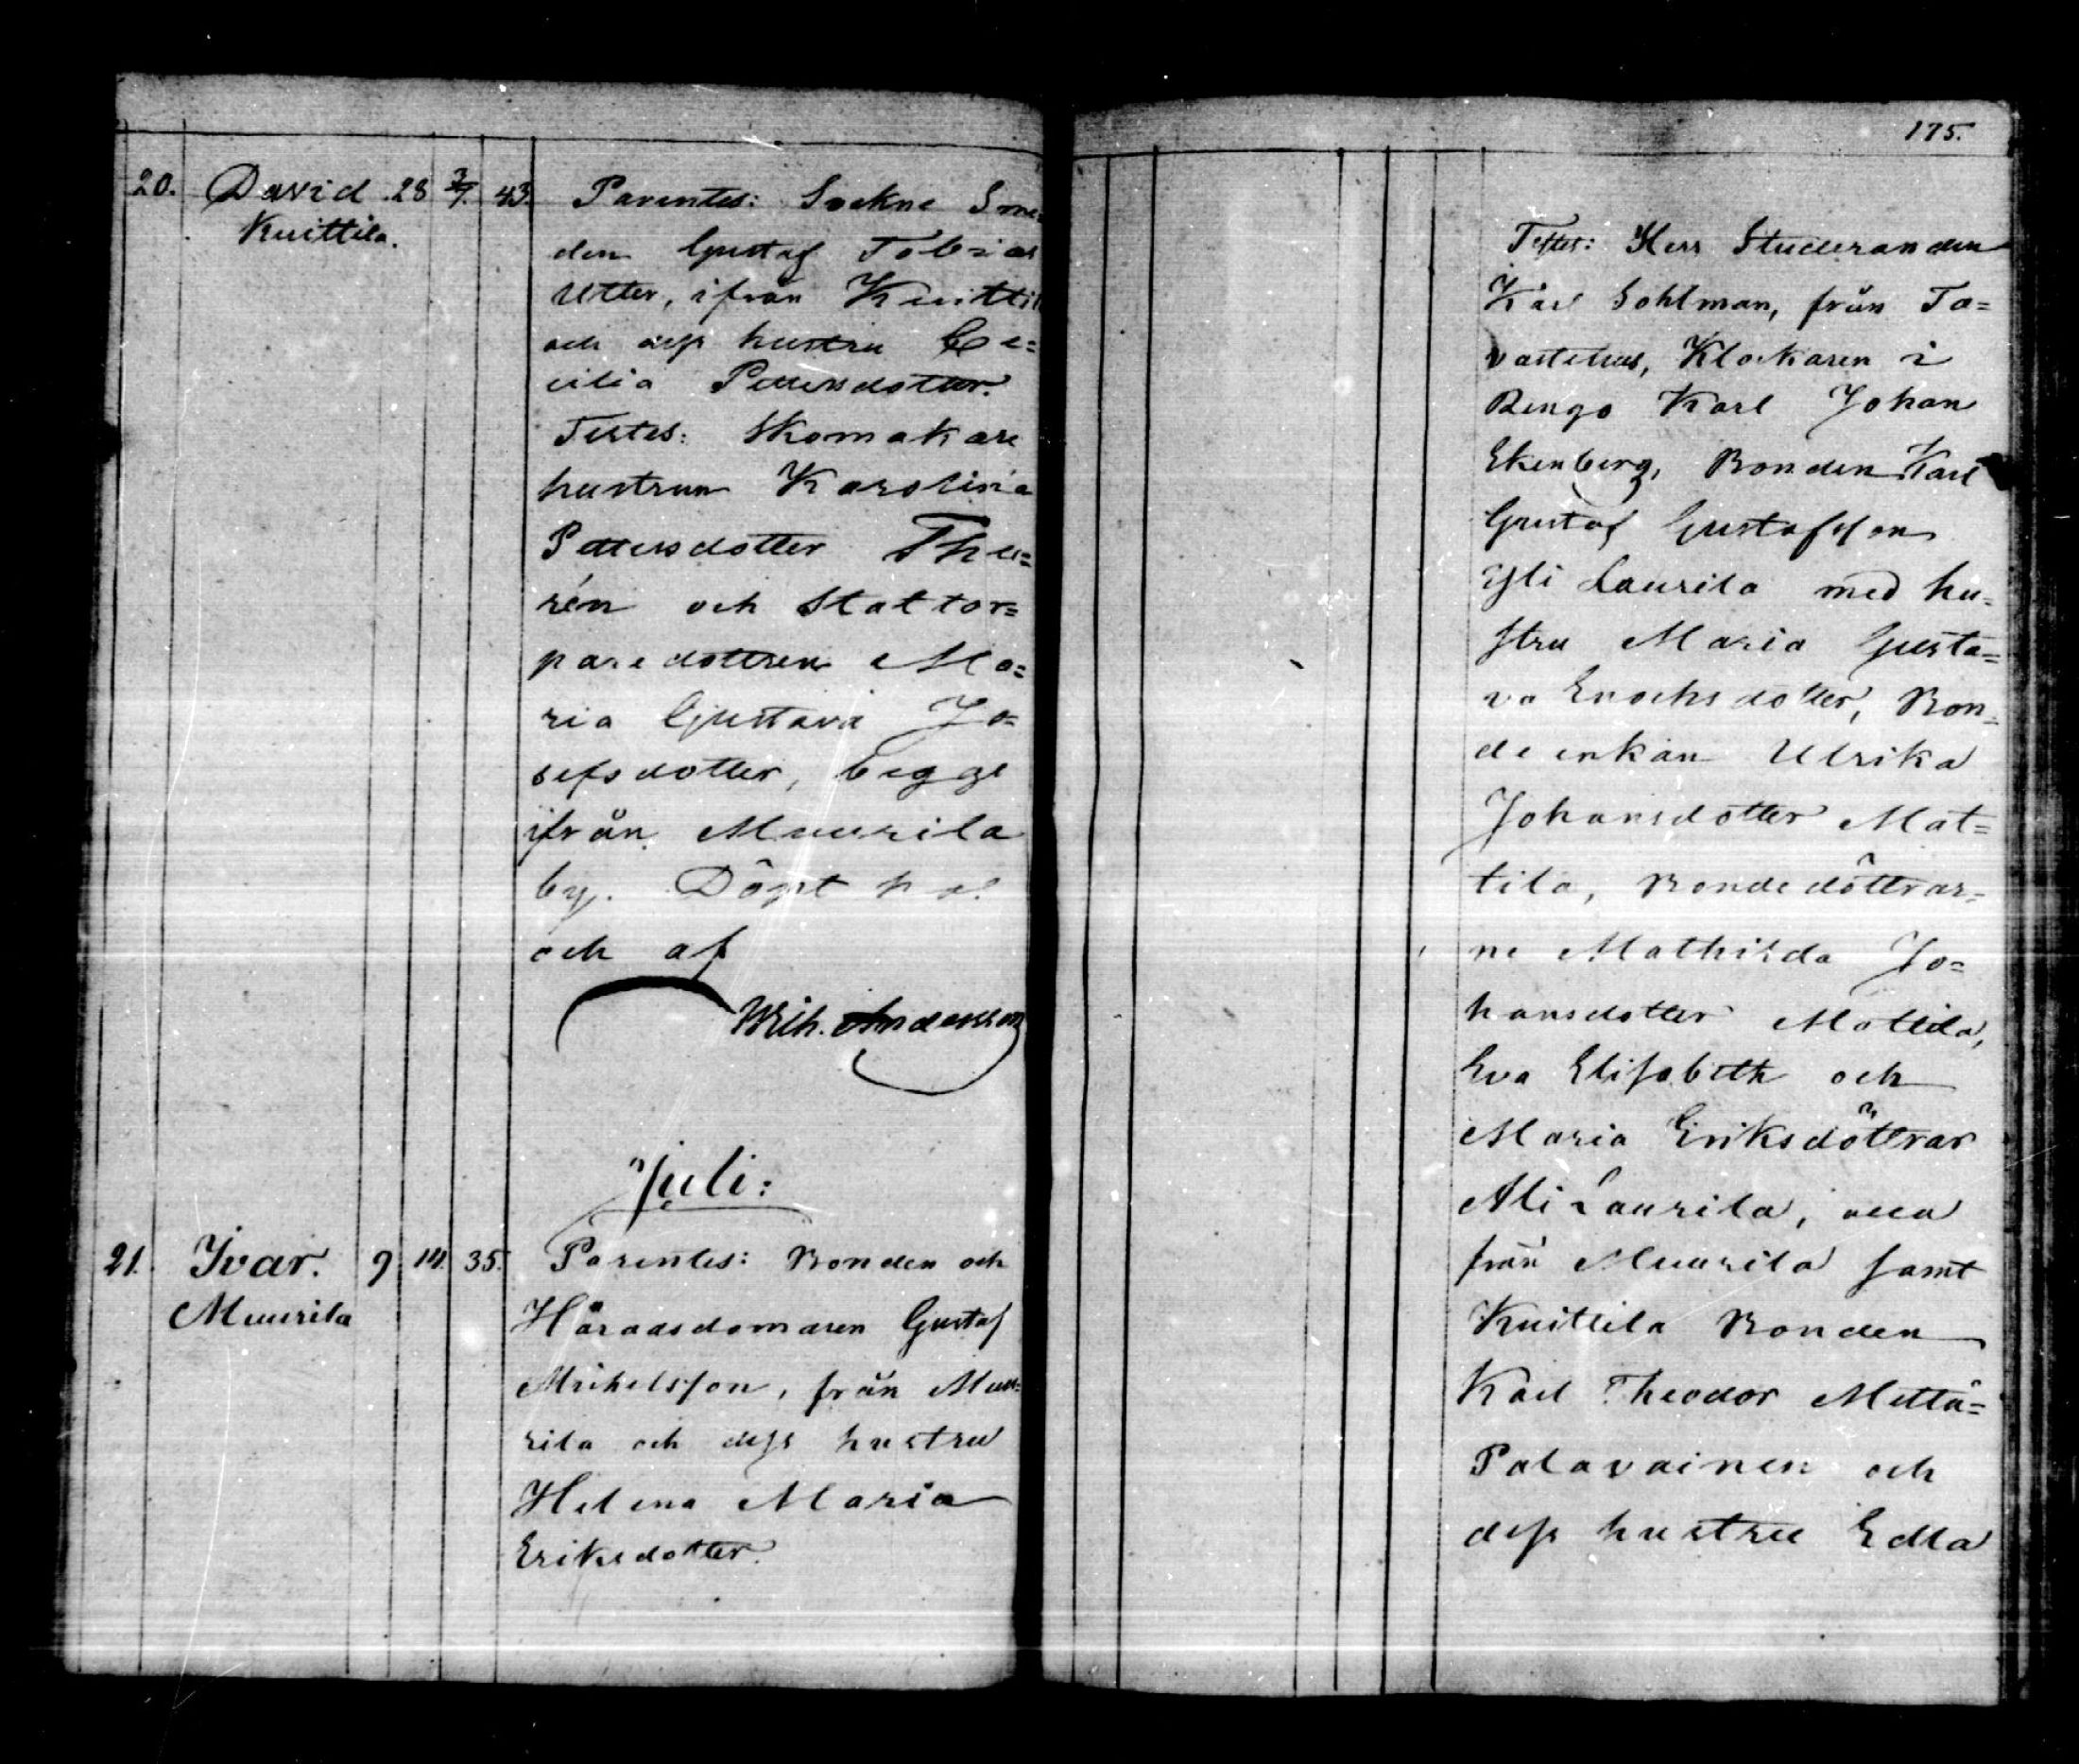 20. David 28 3/7. 43. Parentes: Sockne Sme=
Kuittila.
den Gustaf Tobias
Utter, ifrån Kuittil
och dess hustru Ce=
cilia Pettersdotter.
Testes: Skomakare
hustrun Karolina
Pettersdotter Thu=
rén och Stattor=
paredottren Ma=
ria Gustava Jo=
sefsdotter, begge
ifrån Muurila
by. Döpt
och af
Wilh. Andersson
Juli:
21. Ivar. 9 14. 35. Parentes: Bonden och
Muurila
Häradsdomaren Gustaf
Mickelsson, från Muu=
rila och dess hustru
Helena Maria
Eriksdotter.
175.
Testes: Herr Studeranden
Karl Sohlman, från Ta=
vastehus, Klockaren i
Rengo Karl Johan
Ekenberg, Bonden Karl
Gustaf Gustafsson
Yli Laurila med hu=
stru Maria Gusta=
va Enochsdotter, Bon=
deenkan Ulrika
Johansdotter Mat=
tila, Bondedöttrar=
ne Mathilda Jo=
hansdotter Mattila,
Eva Elisabeth och
Maria Eriksdöttrar
Ali Laurila, alla
från Muurila samt
Kuittila Bonden
Karl Theodor Mettä=
Palavainen och
dess hustru Edla